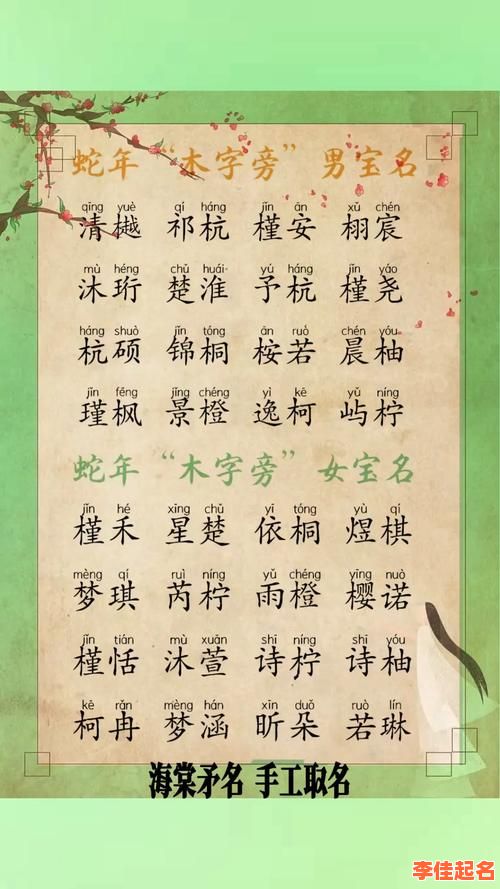 蛇年“木字旁”男宝名
qīng yuè qí háng jǐn ān xǔ chén
清樾 祁杭 槿安 栩宸
mù héng chǔ huái yú háng jǐn yáo
沐珩 楚淮 予杭 槿尧
háng shuò jǐn tóng ān ruò chén yóu
杭硕 锦桐 桉若 晨柚
jǐn fēng jǐng chéng yì kē yǔ níng
瑾枫 景橙 逸柯 屿柠
蛇年“木字旁”女宝名
jǐn hé xīng chǔ yī tóng yù qí
槿禾 星楚 依桐 煜棋
mèng qí ruì níng yǔ chéng yīng nuò
梦琪 芮柠 雨橙 樱诺
jǐn tián mù xuān shī níng shī yóu
槿恬 沐萱 诗柠 诗柚
kē rǎn mèng hán xīn duǒ ruò lín
柯冉 梦涵 昕朵 若琳
海棠矛名 手工取名
李佳起名